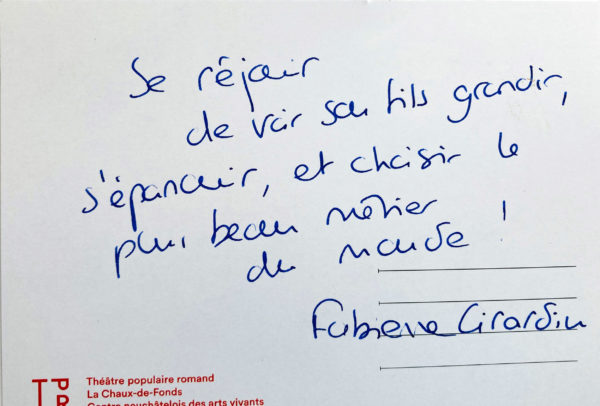 Se réjouir
de voir son fils grandir,
s'épanouir, et choisir le
plus beau métier
du monde !
Fabienne Girardin
TPR
Théâtre populaire romand
La Chaux-de-Fonds
Centre neuchâtelois des arts vivants